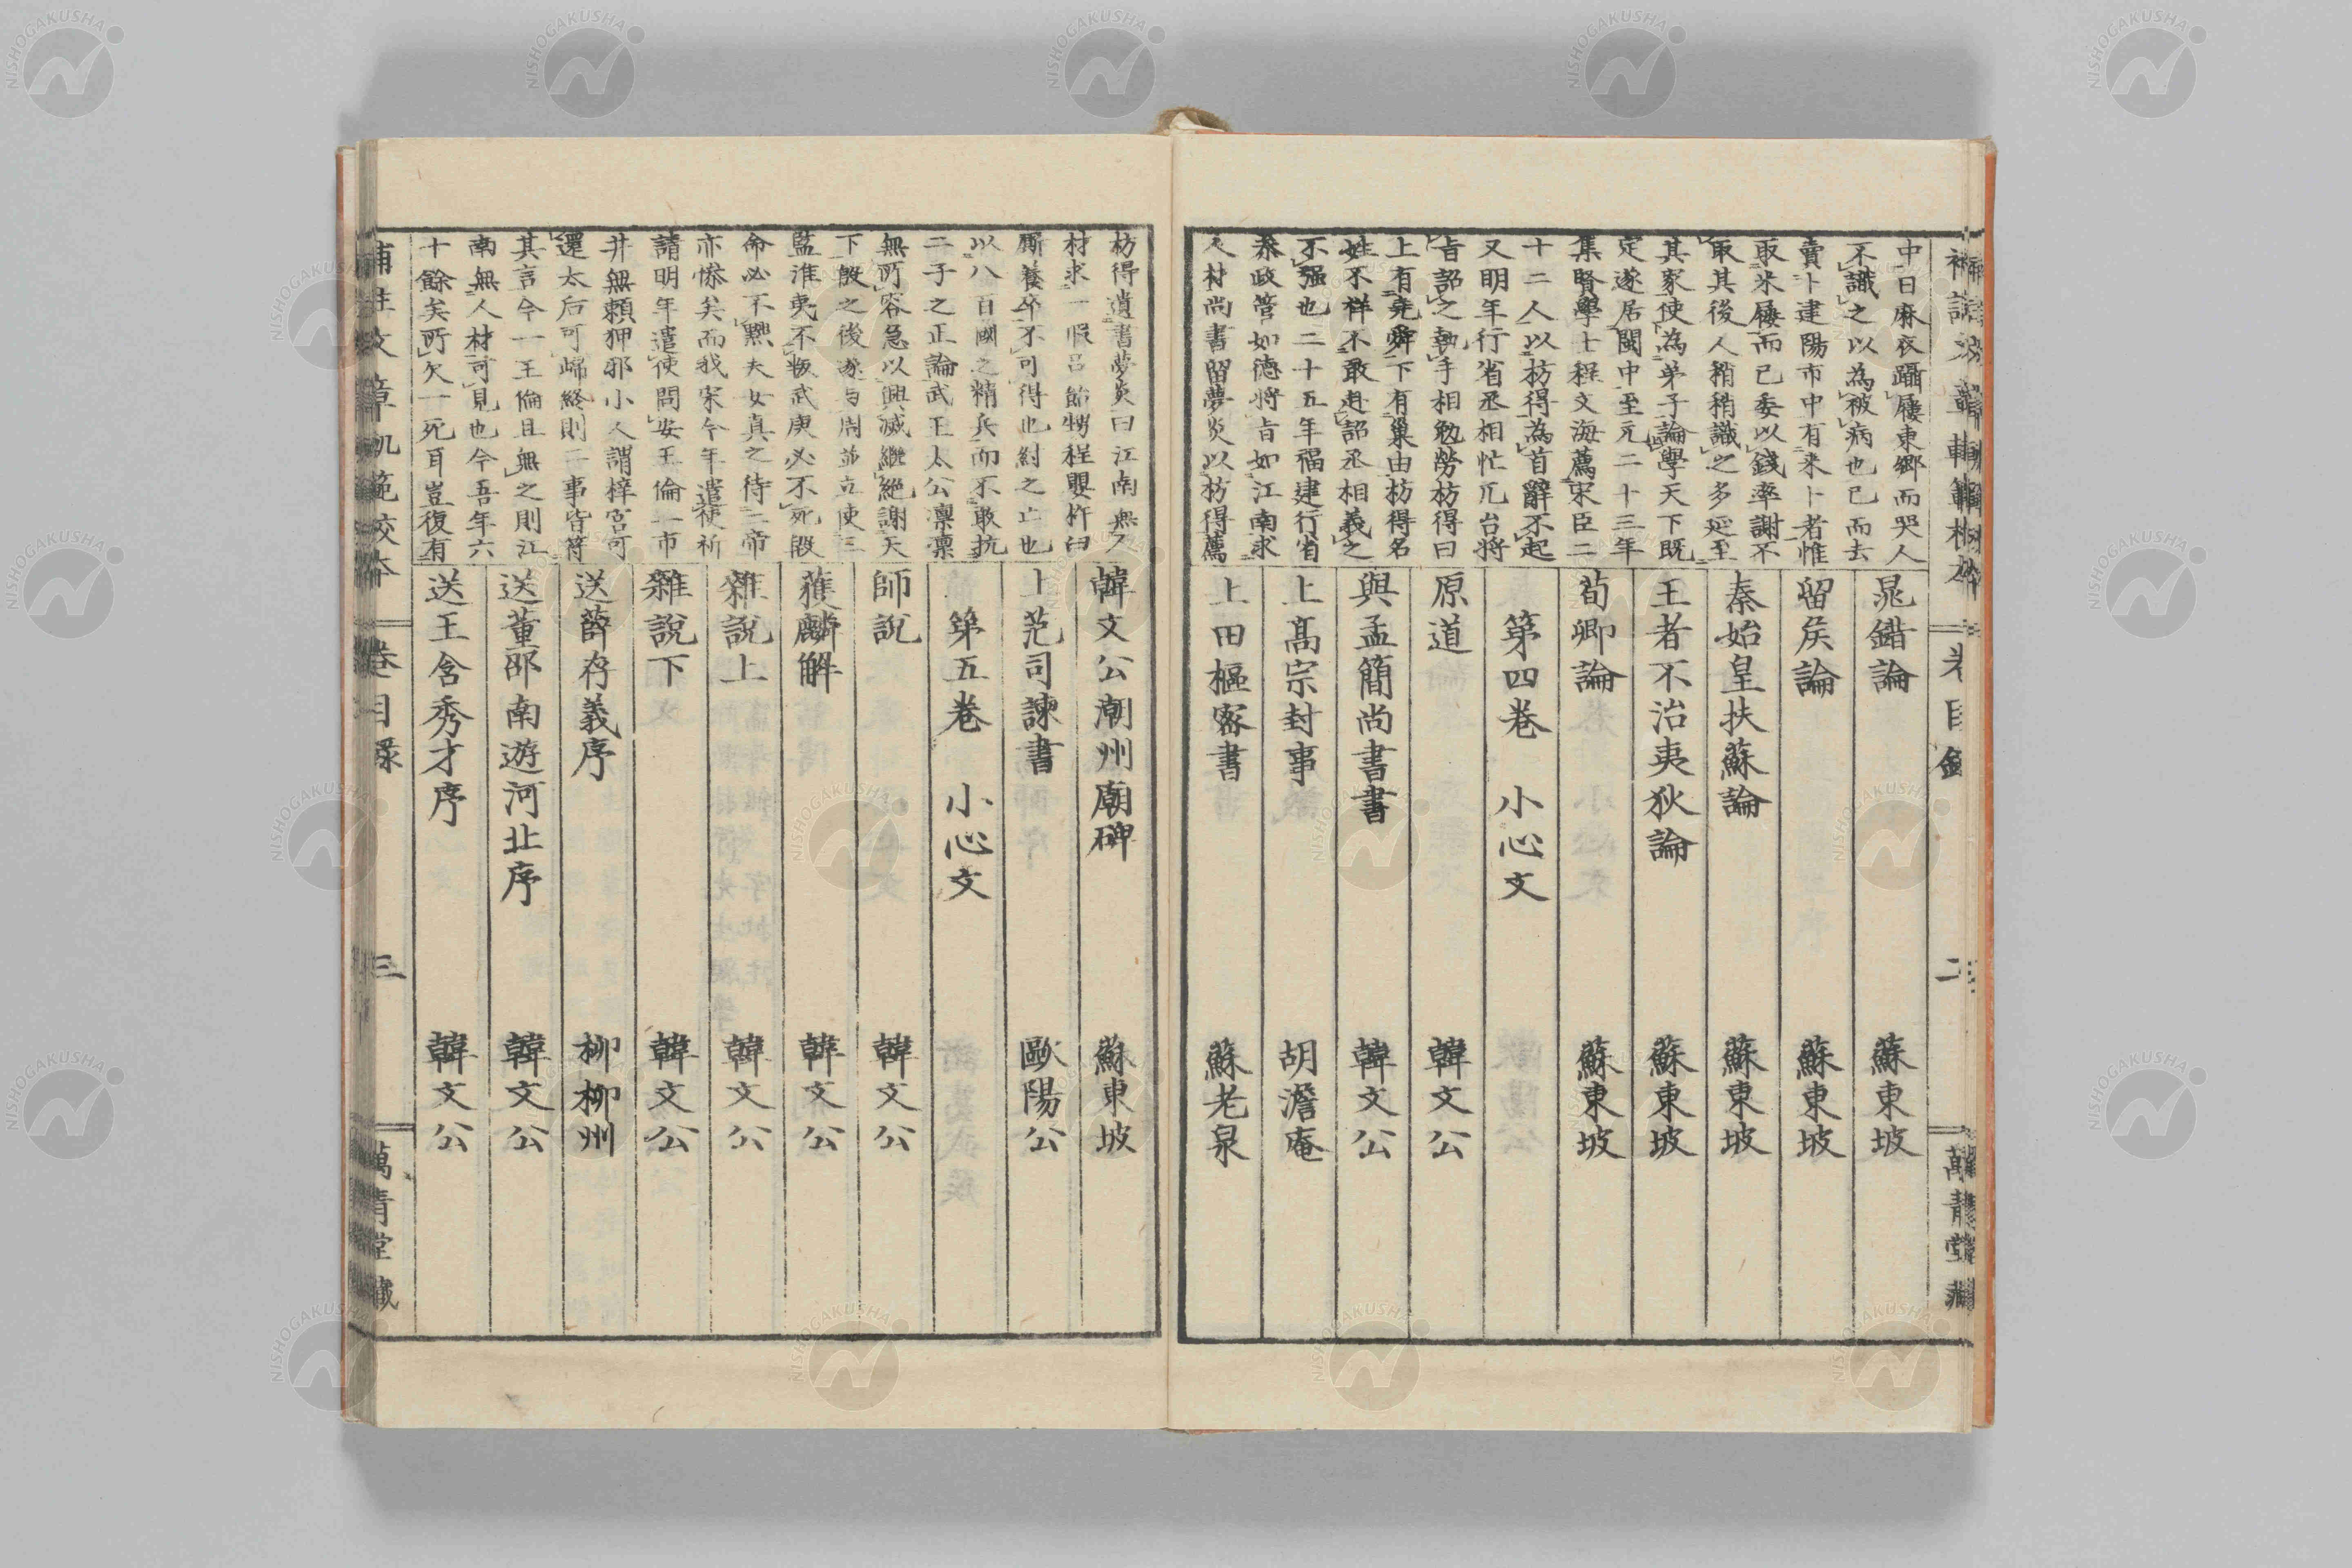 中日麻衣躡屨東鄉而哭人
不識之以為被病也已而去
賣卜建陽市中有來卜者惟
取米屨而已委以錢率謝不
取其後人稍稍識之多延至
其家使為弟子論學天下既
定遂居閩中至元二十三年
集賢學士程文海薦宋臣二
十二人以枋得為首辭不起
又明年行省丞相忙兀台將
旨詔之執手相勉勞枋得曰
上有堯舜下有巢由枋得名
姓不祥不敢赴詔丞相義之
不强也二十五年福建行省
叅政管如德將旨如江南求
人材尚書留夢炎以枋得薦
晁錯論 蘇東坡
留矦論 蘇東坡
秦始皇扶蘇論 蘇東坡
王者不治夷狄論 蘇東坡
荀卿論 蘇東坡
第四卷 小心文
原道 韓文公
與孟簡尚書書 韓文公
上高宗封事 胡澹庵
上田樞密書 蘇老泉
枋得遺書夢炎曰江南無人
材求一瑕呂飴甥程嬰杵臼
厮養卒不可得也紂之亡也
以八百國之精兵而不敢抗
二子之正論武王太公凛凛
無所容急以興滅繼絶謝天
下殷之後遂与周並立使三
監淮夷不叛武庚必不死殷
命必不黜夫女真之待二帝
亦慘矣而我宋今年遣使祈
請明年遣使問安王倫一市
井無頼狎邪小人謂梓宮可
還太后可歸終則二事皆符
其言今一王倫且無之則江
南無人材可見也今吾年六
十餘矣所欠一死耳豈復有
韓文公潮州廟碑 蘇東坡
上范司諫書 歐陽公
第五卷 小心文
師說 韓文公
獲麟解 韓文公
雜說上 韓文公
雜說下 韓文公
送薛存義序 柳柳州
送董邵南遊河北序 韓文公
送王含秀才序 韓文公
補註文章軌範校本 卷目録 三 萬青堂藏